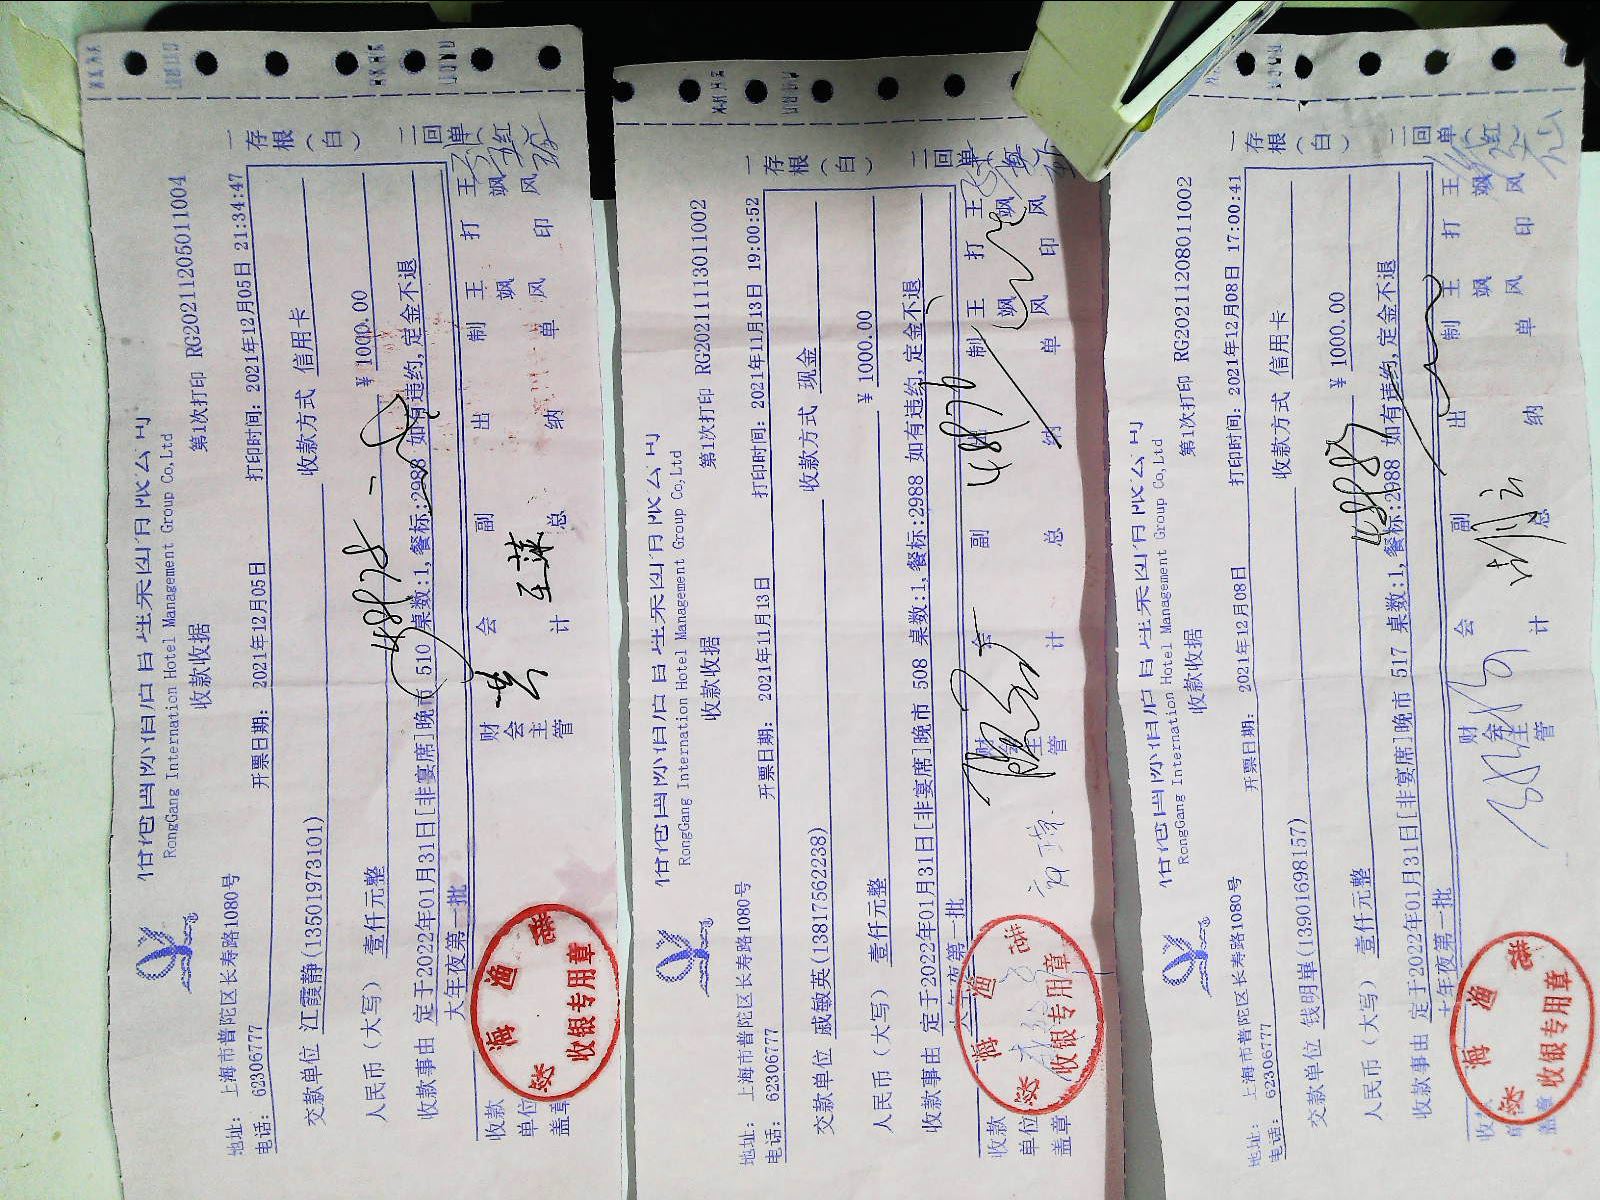 RongGang Internation Hotel Management Group Co,Ltd
收款收据 第1次打印 RG2021120501​1004
地址: 上海市普陀区长寿路1080号
电话: 62306777 开票日期: 2021年12月05日 打印时间: 2021年12月05日 21:34:47
交款单位 江霞静(13501973101) 收款方式 信用卡
人民币(大写) 壹仟元整 ¥ 1000.00
收款事由 定于2022年01月31日[非宴席]晚市 510 桌数:1,餐标:2988 如有违约,定金不退
大年夜第一批
收款单位盖章 财会主管 会计 副总 出纳 制单 王飒风 打印 王飒风
一存根(白) 二回单(红)
渔港
收银专用章
RongGang Internation Hotel Management Group Co,Ltd
收款收据 第1次打印 RG20211113011002
地址: 上海市普陀区长寿路1080号
电话: 62306777 开票日期: 2021年11月13日 打印时间: 2021年11月13日 19:00:52
交款单位 戚敏英(13817562238) 收款方式 现金
人民币(大写) 壹仟元整 ¥ 1000.00
收款事由 定于2022年01月31日[非宴席]晚市 508 桌数:1,餐标:2988 如有违约,定金不退
大年夜第一批
收款单位盖章 财会主管 会计 副总 出纳 制单 王飒风 打印 王飒风
一存根(白) 二回单
渔港
收银专用章
RongGang Internation Hotel Management Group Co,Ltd
收款收据 第1次打印 RG20211208011002
地址: 上海市普陀区长寿路1080号
电话: 62306777 开票日期: 2021年12月08日 打印时间: 2021年12月08日 17:00:41
交款单位 钱明单(13901698157) 收款方式 信用卡
人民币(大写) 壹仟元整 ¥ 1000.00
收款事由 定于2022年01月31日[非宴席]晚市 517 桌数:1,餐标:2988 如有违约,定金不退
大年夜第一批
盖章 财会主管 会计 副总 出纳 制单 王飒风 打印 王飒风
一存根(白) 二回单(红)
渔港
收银专用章